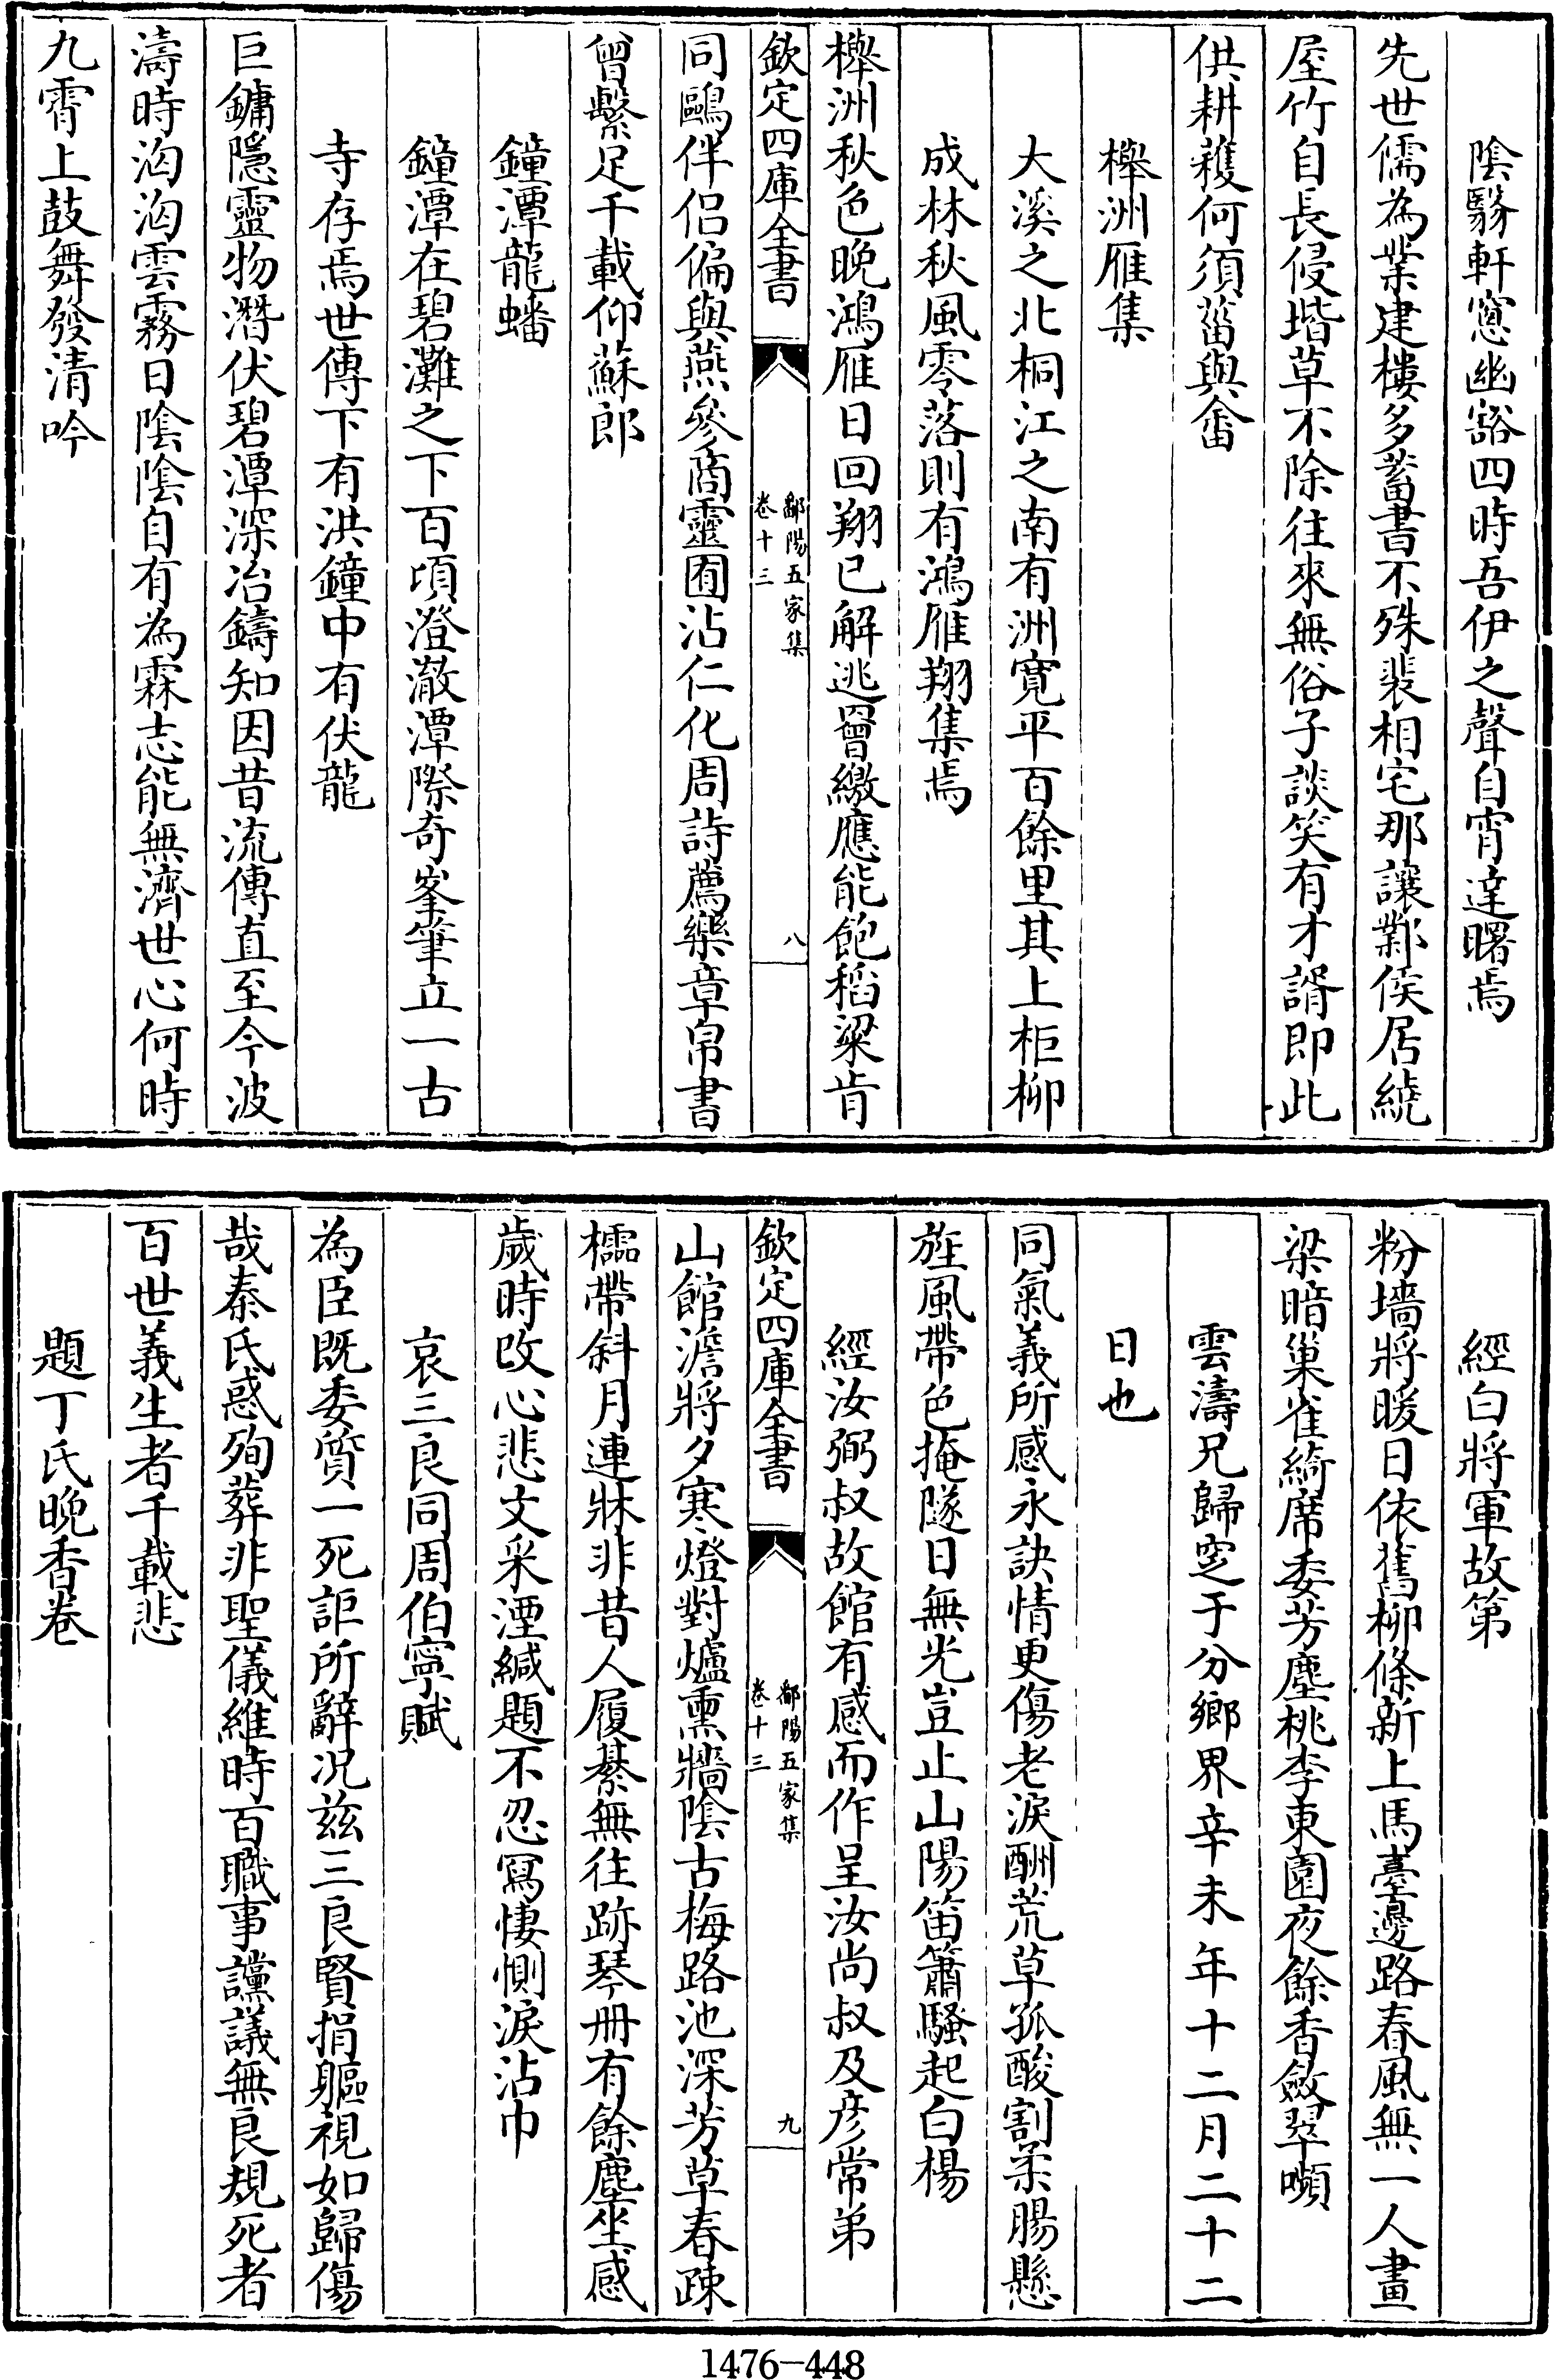 陰翳軒窻幽豁四時吾伊之聲自宵達曙焉
先世儒為業建樓多蓄書不殊裴相宅那讓鄴侯居繞
屋竹自長侵堦草不除往來無俗子談笑有才諝即此
供耕穫何須菑與畬
櫸洲雁集
大溪之北桐江之南有洲寛平百餘里其上柜柳
成林秋風零落則有鴻雁翔集焉
櫸洲秋色晚鴻雁日回翔已解逃矰繳應能飽稻粱肯
欽定四庫全書
鄱陽五家集
卷十三
八
同鷗伴侣偏與燕參商靈囿沾仁化周詩薦樂章帛書
曾繫足千載仰蘇郎
鐘潭龍蟠
鐘潭在碧灘之下百頃澄澈潭際奇峯筆立一古
寺存焉世傳下有洪鐘中有伏龍
巨鏞隱靈物潛伏碧潭深冶鑄知因昔流傳直至今波
濤時洶洶雲霧日陰陰自有為霖志能無濟世心何時
九霄上鼓舞發清吟
經白將軍故第
粉墻將暖日依舊柳條新上馬臺邊路春風無一人畫
梁暗巢雀綺席委芳塵桃李東園夜餘香斂翠嚬
雲濤兄歸窆于分鄉界辛未年十二月二十二
日也
同氣義所感永訣情更傷老淚酬荒草孤酸割柔腸懸
旌風帶色掩隧日無光豈止山陽笛簫騷起白楊
經汝弼叔故館有感而作呈汝尚叔及彦常弟
欽定四庫全書
鄱陽五家集
卷十三
九
山館澹將夕寒燈對爐熏牆陰古梅路池深芳草春疎
櫺帶斜月連牀非昔人履綦無往跡琴册有餘塵坐感
歲時改心悲文采湮緘題不忍冩悽惻淚沾巾
哀三良同周伯寧賦
為臣既委質一死詎所辭况兹三良賢捐軀視如歸傷
哉秦氏惑殉葬非聖儀維時百職事讜議無良規死者
百世義生者千載悲
題丁氏晚香卷
1476-448